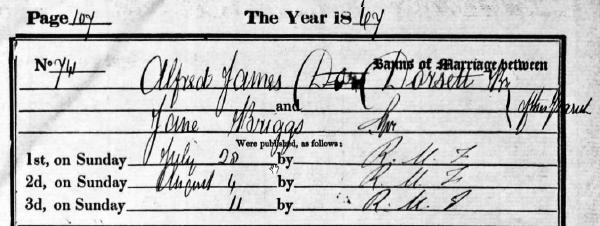 Page 107 The Year is 1867
No. 74 Banns of Marriage between
Alfred James Dorsett Br
and of this Parish
Jane Briggs Spr
Were published, as follows:
1st, on Sunday July 28 by R. M. F
2d, on Sunday August 4 by R. M. F
3d, on Sunday 11 by R. M. F